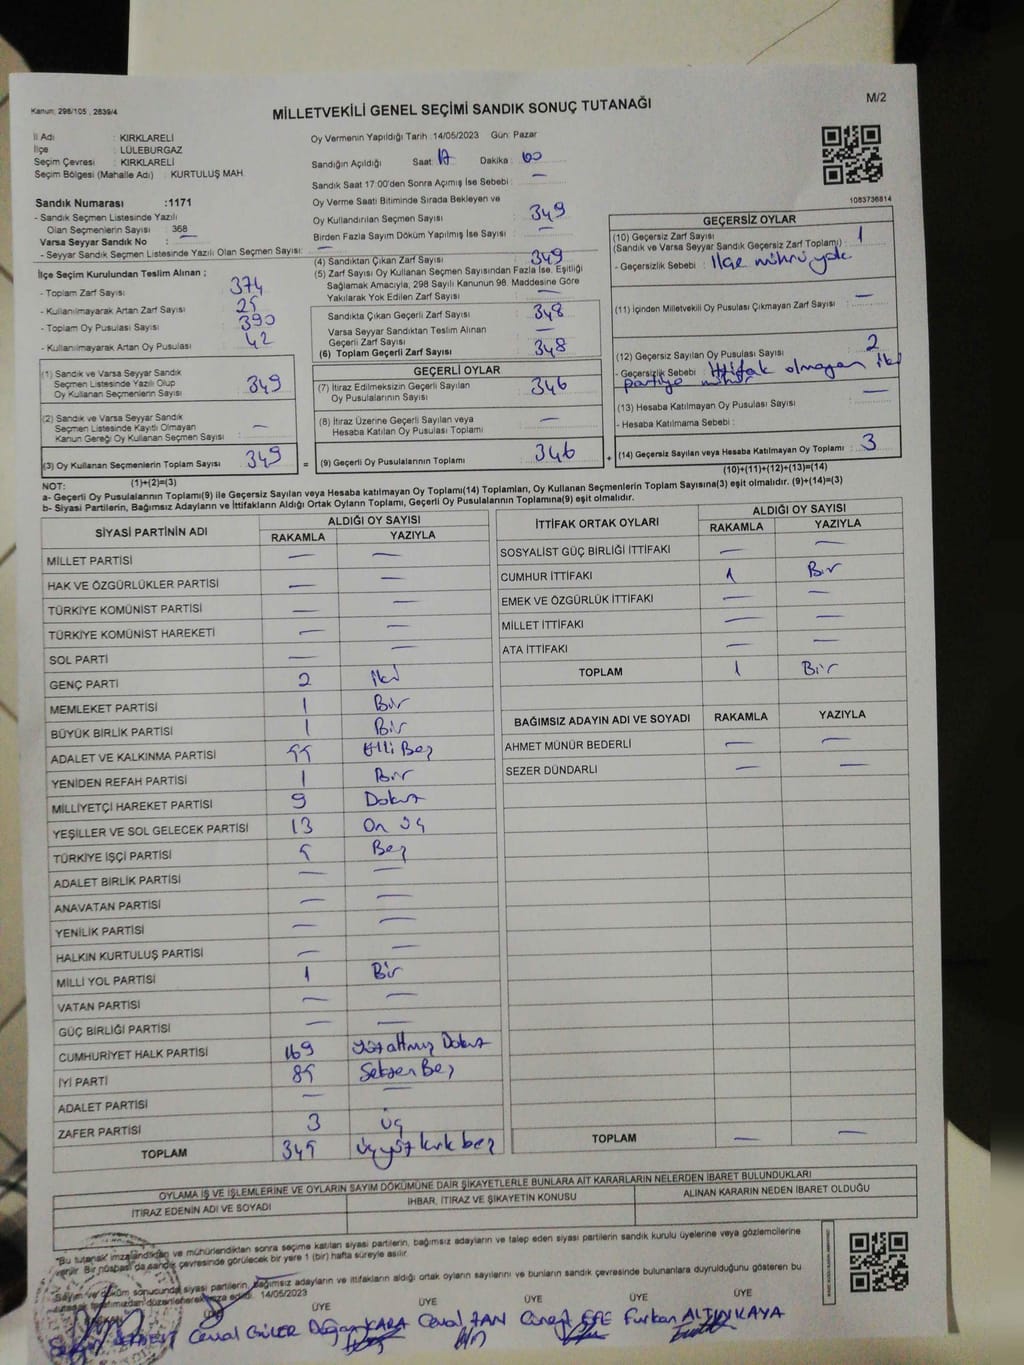 Kanun: 298/105 , 2839/4
MİLLETVEKİLİ GENEL SEÇİMİ SANDIK SONUÇ TUTANAĞI
M/2
İl Adı : KIRKLARELİ
İlçe : LÜLEBURGAZ
Seçim Çevresi : KIRKLARELİ
Seçim Bölgesi (Mahalle Adı) : KURTULUŞ MAH.
Sandık Numarası :1171
- Sandık Seçmen Listesinde Yazılı
Olan Seçmenlerin Sayısı : 368
Varsa Seyyar Sandık No : —
- Seyyar Sandık Seçmen Listesinde Yazılı Olan Seçmen Sayısı: —
İlçe Seçim Kurulundan Teslim Alınan ;
- Toplam Zarf Sayısı : 374
- Kullanılmayarak Artan Zarf Sayısı : 25
- Toplam Oy Pusulası Sayısı : 390
- Kullanılmayarak Artan Oy Pusulası : 42
(1) Sandık ve Varsa Seyyar Sandık
Seçmen Listesinde Yazılı Olup
Oy Kullanan Seçmenlerin Sayısı : 349
(2) Sandık ve Varsa Seyyar Sandık
Seçmen Listesinde Kayıtlı Olmayan
Kanun Gereği Oy Kullanan Seçmen Sayısı : —
(3) Oy Kullanan Seçmenlerin Toplam Sayısı : 349
(1)+(2)=(3)
Oy Vermenin Yapıldığı Tarih :14/05/2023 Gün: Pazar
Sandığın Açıldığı Saat: 17 Dakika : 00
Sandık Saat 17:00'den Sonra Açımış İse Sebebi : —
Oy Verme Saati Bitiminde Sırada Bekleyen ve
Oy Kullandırılan Seçmen Sayısı : 349
Birden Fazla Sayım Döküm Yapılmış İse Sayısı : —
(4) Sandıktan Çıkan Zarf Sayısı : 349
(5) Zarf Sayısı Oy Kullanan Seçmen Sayısından Fazla İse, Eşitliği
Sağlamak Amacıyla, 298 Sayılı Kanunun 98. Maddesine Göre
Yakılarak Yok Edilen Zarf Sayısı : —
Sandıkta Çıkan Geçerli Zarf Sayısı : 348
Varsa Seyyar Sandıktan Teslim Alınan
Geçerli Zarf Sayısı : —
(6) Toplam Geçerli Zarf Sayısı : 348
GEÇERLİ OYLAR
(7) İtiraz Edilmeksizin Geçerli Sayılan
Oy Pusulalarının Sayısı : 346
(8) İtiraz Üzerine Geçerli Sayılan veya
Hesaba Katılan Oy Pusulası Toplamı : —
= (9) Geçerli Oy Pusulalarının Toplamı : 346 +
1083736814
GEÇERSİZ OYLAR
(10) Geçersiz Zarf Sayısı
(Sandık ve Varsa Seyyar Sandık Geçersiz Zarf Toplamı) : 1
- Geçersizlik Sebebi : İlçe mührü yok
(11) İçinden Milletvekili Oy Pusulası Çıkmayan Zarf Sayısı : —
(12) Geçersiz Sayılan Oy Pusulası Sayısı : 2
- Geçersizlik Sebebi : İttifak olmayan iki
partiye mühür
(13) Hesaba Katılmayan Oy Pusulası Sayısı : —
- Hesaba Katılmama Sebebi :
(14) Geçersiz Sayılan veya Hesaba Katılmayan Oy Toplamı : 3
(10)+(11)+(12)+(13)=(14)
NOT:
a- Geçerli Oy Pusulalarının Toplamı(9) ile Geçersiz Sayılan veya Hesaba katılmayan Oy Toplamı(14) Toplamları, Oy Kullanan Seçmenlerin Toplam Sayısına(3) eşit olmalıdır. (9)+(14)=(3)
b- Siyasi Partilerin, Bağımsız Adayların ve İttifakların Aldığı Ortak Oyların Toplamı, Geçerli Oy Pusulalarının Toplamına(9) eşit olmalıdır.
SİYASİ PARTİNİN ADI ALDIĞI OY SAYISI
RAKAMLA YAZIYLA
MİLLET PARTİSİ — —
HAK VE ÖZGÜRLÜKLER PARTİSİ — —
TÜRKİYE KOMÜNİST PARTİSİ — —
TÜRKİYE KOMÜNİST HAREKETİ — —
SOL PARTİ — —
GENÇ PARTİ 2 iki
MEMLEKET PARTİSİ 1 Bir
BÜYÜK BİRLİK PARTİSİ 1 Bir
ADALET VE KALKINMA PARTİSİ 55 Elli Beş
YENİDEN REFAH PARTİSİ 1 Bir
MİLLİYETÇİ HAREKET PARTİSİ 9 Dokuz
YEŞİLLER VE SOL GELECEK PARTİSİ 13 On üç
TÜRKİYE İŞÇİ PARTİSİ 5 Beş
ADALET BİRLİK PARTİSİ — —
ANAVATAN PARTİSİ — —
YENİLİK PARTİSİ — —
HALKIN KURTULUŞ PARTİSİ — —
MİLLİ YOL PARTİSİ 1 Bir
VATAN PARTİSİ — —
GÜÇ BİRLİĞİ PARTİSİ — —
CUMHURİYET HALK PARTİSİ 169 Yüz altmış Dokuz
İYİ PARTİ 85 Seksen Beş
ADALET PARTİSİ — —
ZAFER PARTİSİ 3 üç
TOPLAM 345 Üçyüz kırk beş
İTTİFAK ORTAK OYLARI ALDIĞI OY SAYISI
RAKAMLA YAZIYLA
SOSYALİST GÜÇ BİRLİĞİ İTTİFAKI — —
CUMHUR İTTİFAKI 1 Bir
EMEK VE ÖZGÜRLÜK İTTİFAKI — —
MİLLET İTTİFAKI — —
ATA İTTİFAKI — —
TOPLAM 1 Bir
BAĞIMSIZ ADAYIN ADI VE SOYADI RAKAMLA YAZIYLA
AHMET MÜNÜR BEDERLİ — —
SEZER DÜNDARLI — —
TOPLAM — —
OYLAMA İŞ VE İŞLEMLERİNE VE OYLARIN SAYIM DÖKÜMÜNE DAİR ŞİKAYETLERLE BUNLARA AİT KARARLARIN NELERDEN İBARET BULUNDUKLARI
İTİRAZ EDENİN ADI VE SOYADI İHBAR, İTİRAZ VE ŞİKAYETİN KONUSU ALINAN KARARIN NEDEN İBARET OLDUĞU
"Bu tutanak imzalandıktan ve mühürlendikten sonra seçime katılan siyasi partilerin, bağımsız adayların ve talep eden siyasi partilerin sandık kurulu üyelerine veya gözlemcilerine
verilir. Bir nüshası da sandık çevresinde görülecek bir yere 1 (bir) hafta süreyle asılır.
Sayım ve döküm sonucunda siyasi partilerin, bağımsız adayların ve ittifakların aldığı ortak oyların sayılarını ve bunların sandık çevresinde bulunanlara duyrulduğunu gösteren bu
tutanak tarafımızdan düzenlenerek imza edildi. 14/05/2023
ÜYE ÜYE ÜYE ÜYE ÜYE ÜYE
Cemal GÜLER Doğan KARA Cemal TAN Cüneyt EFE Furkan ALTINKAYA